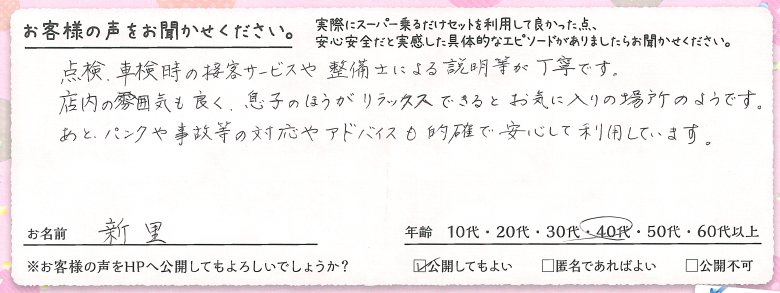 お客様の声をお聞かせください。
実際にスーパー乗るだけセットを利用して良かった点、
安心安全だと実感した具体的なエピソードがありましたらお聞かせください。
点検、車検時の接客サービスや整備士による説明等が丁寧です。
店内の雰囲気も良く、息子のほうがリラックスできるとお気に入りの場所のようです。
あと、パンクや事故等の対応やアドバイスも的確で安心して利用しています。
お名前 新里 年齢 10代・20代・30代・40代・50代・60代以上
※お客様の声をHPへ公開してもよろしいでしょうか? ☑公開してもよい □匿名であればよい □公開不可